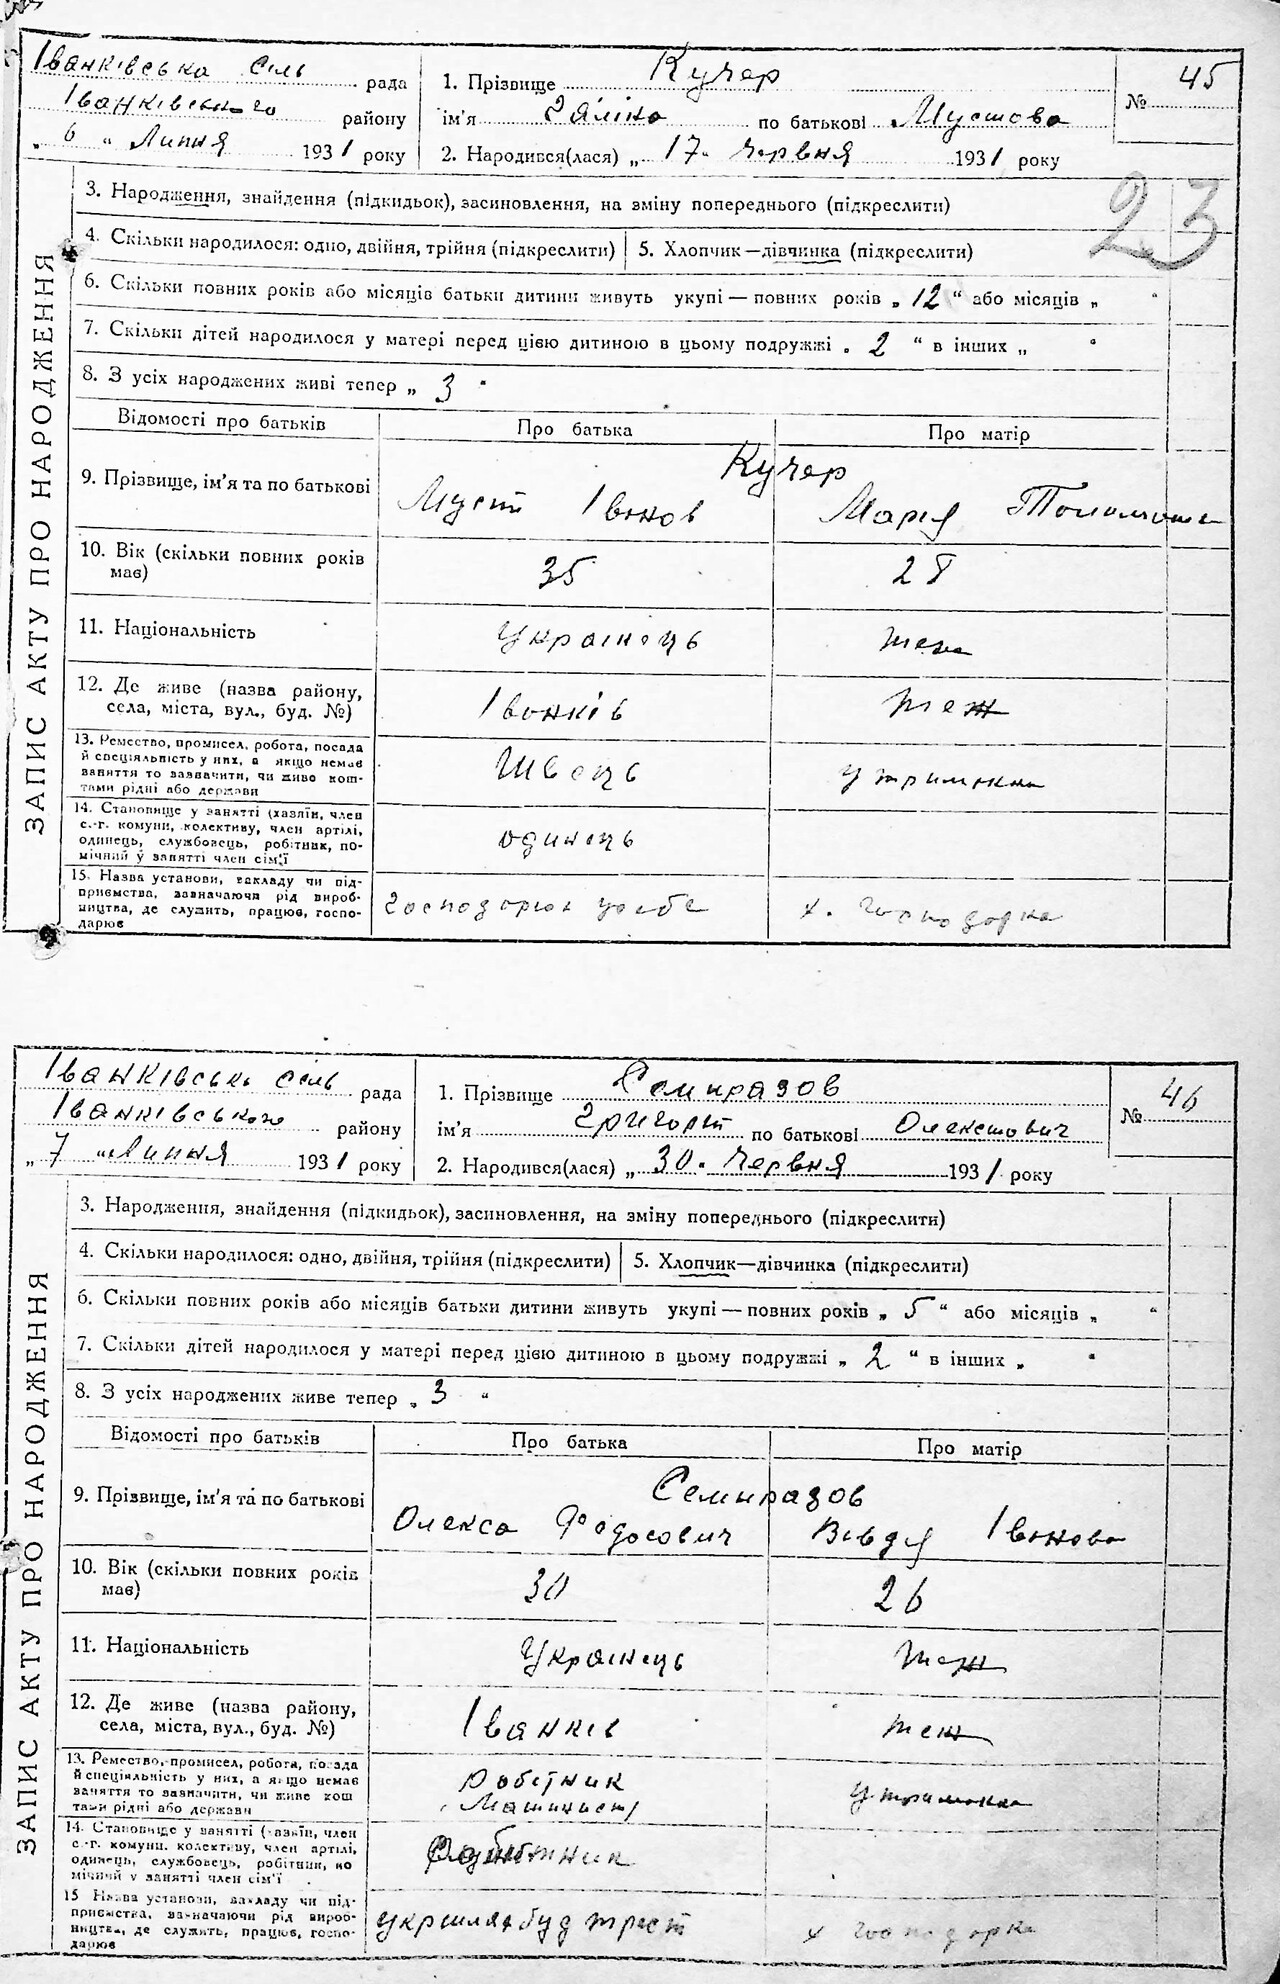 Іванківська сіль рада
Іванківського району
„ 6 “ Липня 1931 року
1. Прізвище Кучер
ім'я Галіна по батькові
2. Народився(лася) „ 17. червня 1931 року
№ 45
23
ЗАПИС АКТУ ПРО НАРОДЖЕННЯ
3. Народження, знайдення (підкидьок), засиновлення, на зміну попереднього (підкреслити)
4. Скільки народилося: одно, двійня, трійня (підкреслити) 5. Хлопчик—дівчинка (підкреслити)
6. Скільки повних років або місяців батьки дитини живуть укупі — повних років „ 12 “ або місяців „ “
7. Скільки дітей народилося у матері перед цією дитиною в цьому подружжі „ 2 “ в інших „ “
8. З усіх народжених живі тепер „ 3 “
Відомості про батьків Про батька Про матір
9. Прізвище, ім'я та по батькові Кучер
Іванов Марія
10. Вік (скільки повних років має) 35 28
11. Національність Українець теж
12. Де живе (назва району, села, міста, вул., буд. №) Іванків теж
13. Ремество, промисел, робота, посада
й спеціяльність у них, а якщо немає
заняття то зазначити, чи живе кош-
тами рідні або держави
Швець утриманка
14. Становище у занятті (хазяїн, член
с.-г. комуни, колективу, член артілі,
одинець, службовець, робітник, по-
мічний у занятті член сім'ї
одинець
15. Назва установи, закладу чи під-
приємства, зазначаючи рід вироб-
ництва, де служить, працює, госпо-
дарює
у себе х. господарка
Іванківська сіль рада
Іванківського району
„ 7 “ Липня 1931 року
1. Прізвище Семиразов
ім'я Григорій по батькові Олексієвич
2. Народився(лася) „ 30. Червня 1931 року
№ 46
ЗАПИС АКТУ ПРО НАРОДЖЕННЯ
3. Народження, знайдення (підкидьок), засиновлення, на зміну попереднього (підкреслити)
4. Скільки народилося: одно, двійня, трійня (підкреслити) 5. Хлопчик—дівчинка (підкреслити)
6. Скільки повних років або місяців батьки дитини живуть укупі — повних років „ 5 “ або місяців „ “
7. Скільки дітей народилося у матері перед цією дитиною в цьому подружжі „ 2 “ в інших „ “
8. З усіх народжених живе тепер „ 3 “
Відомості про батьків Про батька Про матір
9. Прізвище, ім'я та по батькові Семиразов
Олекса Федосович Вівдя Іванова
10. Вік (скільки повних років має) 30 26
11. Національність Українець теж
12. Де живе (назва району, села, міста, вул., буд. №) Іванків теж
13. Ремество, промисел, робота, посада
й спеціяльність у них, а якщо немає
заняття то зазначити, чи живе кош
тами рідні або держави
Робітник
Машиніст утриманка
14. Становище у занятті (хазяїн, член
с.-г. комуни, колективу, член артілі,
одинець, службовець, робітник, по
мічний у занятті член сім'ї
Робітник
15 Назва установи, закладу чи під-
приємства, зазначаючи рід вироб-
ництва, де служить, працює, госпо-
дарює
Укршляхбудтрест х господарка